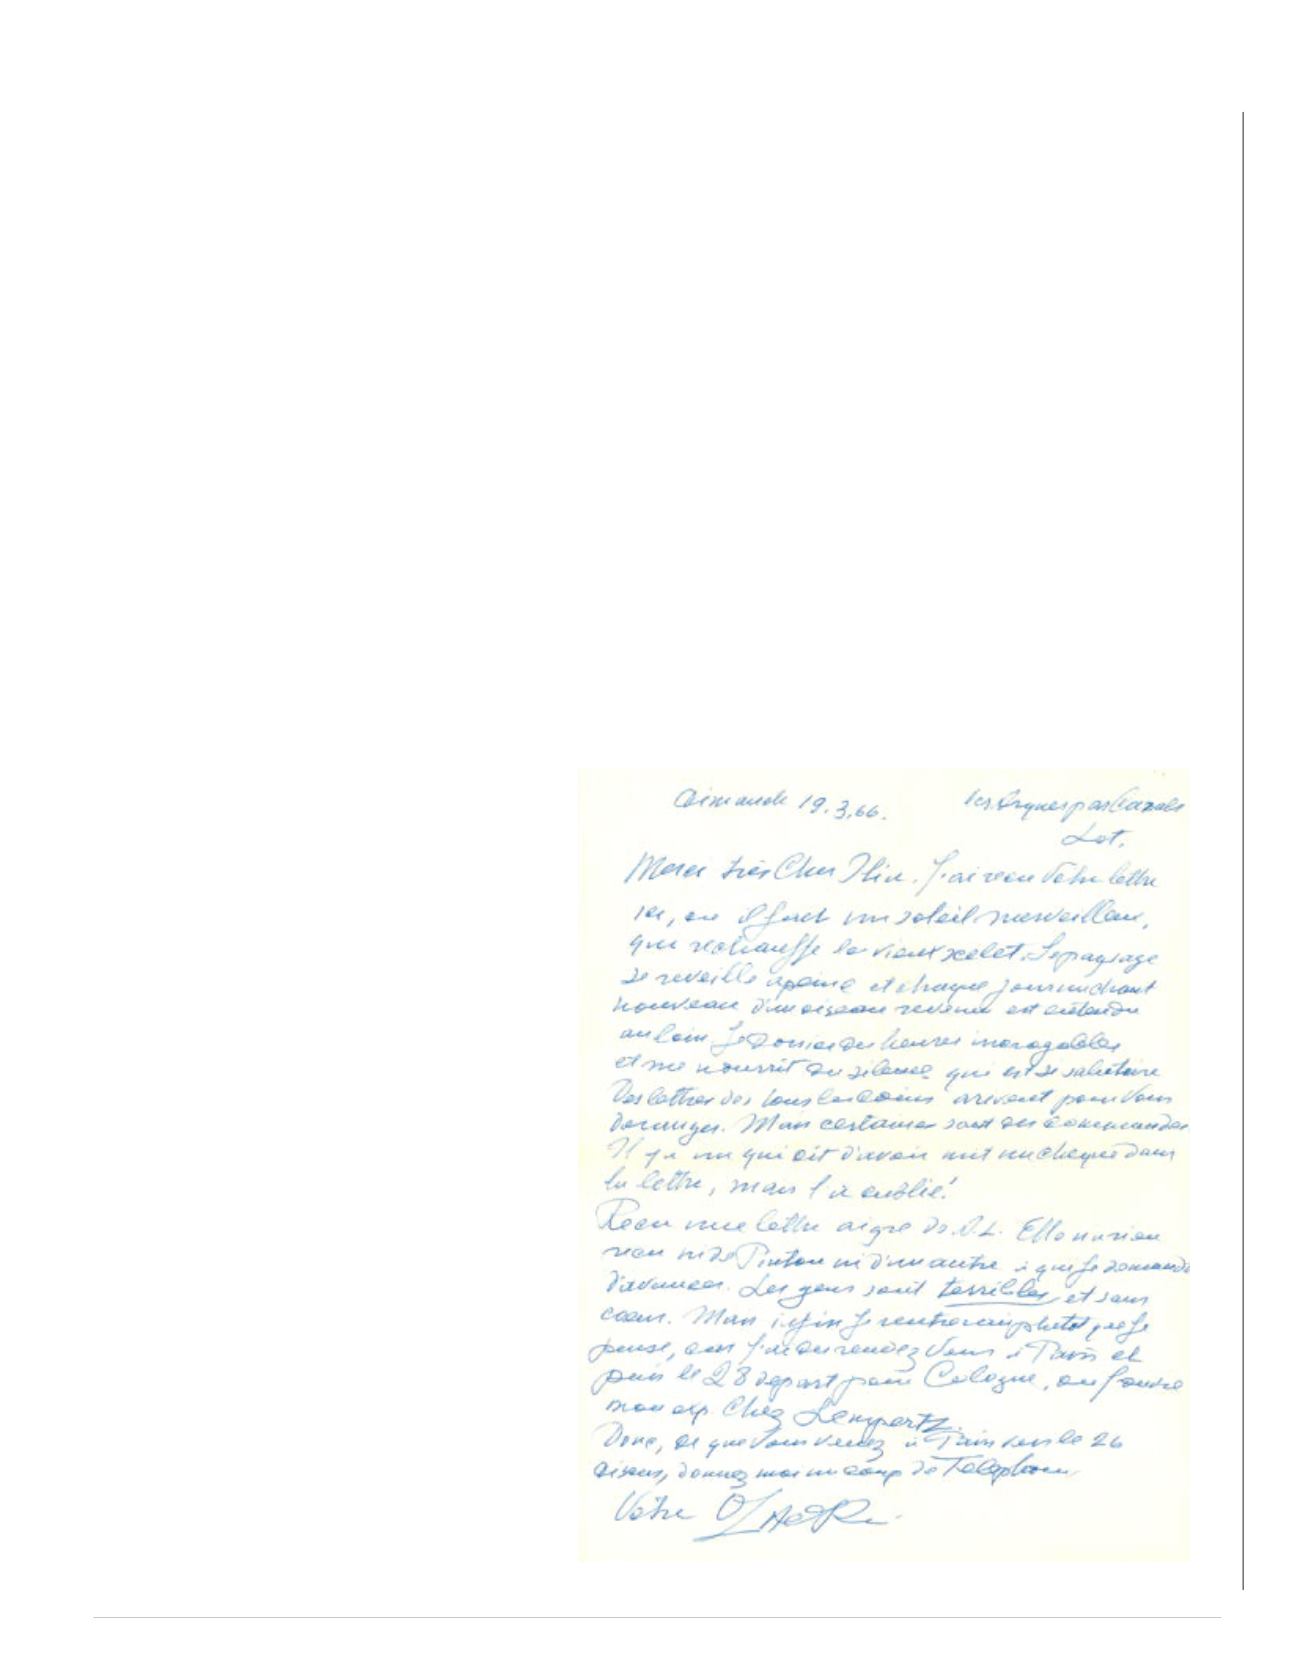 Dimanche 19.3.66. Les Arques par Cazals
Lot.
Merci très Cher Ilin. J'ai reçu Votre lettre
ici, ou il fait un soleil merveilleux,
qui rechauffe le vieux scelet. Le paysage
se reveille a peine et chaque jour un chant
nouveau d'un oiseau revenu est entendu
au loin. Je dors des heures
et me nourrit du silence qui est si salutaire
Des lettres des tous les coins arivent pour Vous
deranger. Mais certaines sont des commandes
Il y a un qui dit d'avoir mit un cheque dans
la lettre, mais l'a oublié!
Recu une lettre aigre de D.L. Elle n'a rien
recu ni de Pinton ni d'un autre à que je demande
d'avances. Les gens sont terribles et sans
coeur. Mais je rentrerai plutot que je
pense, car j'ai du rendez Vous à Paris et
puis le 28 depart pour Cologne, ou j'ouvre
mon exp. Chez Lempertz.
Donc, si que Vous venez à Paris vers le 26
disons, donnez moi un coup de Telephone.
Votre Ô Zadkine